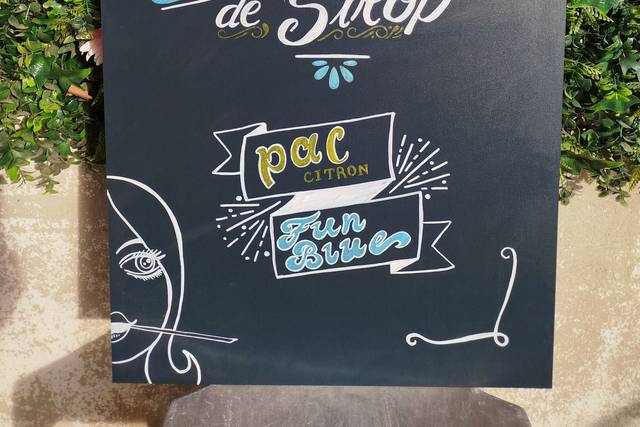 de Sirop
pac
CITRON
Fun
Blue